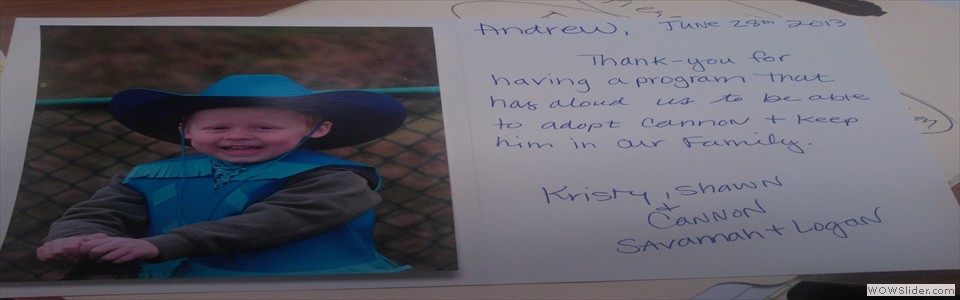 Andrew, June 28th 2013
Thank-you for
having a program that
has aloud us to be able
to adopt Cannon + keep
him in our Family.
Kristy, Shawn
+
Cannon
Savannah + Logan
WOWSlider.com